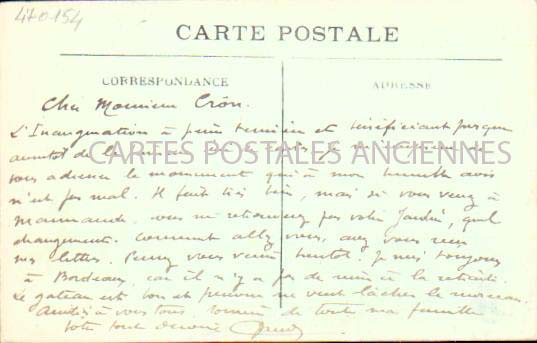 470154
CARTE POSTALE
CORRESPONDANCE
ADRESSE
CARTES POSTALES ANCIENNES
Cher Monsieur Crôn.
L'Inauguration à peine terminée et bénéficiant presque
aussitôt de la
vous adresser le monument qui à mon humble avis
n'est pas mal. Il fait très bien, mais si vous venez à
Marmande, vous ne retrouverez pas votre Jardin, quel
changement. Comment allez vous, avez vous reçu
ma lettre. Pensez vous venir bientôt. Je suis toujours
à Bordeaux, car il n'y a pas de à la retraite.
Le gateau est bon et personne ne veut lâcher le morceau.
Amitiés à vous tous, de toute ma famille
Votre tout dévoué